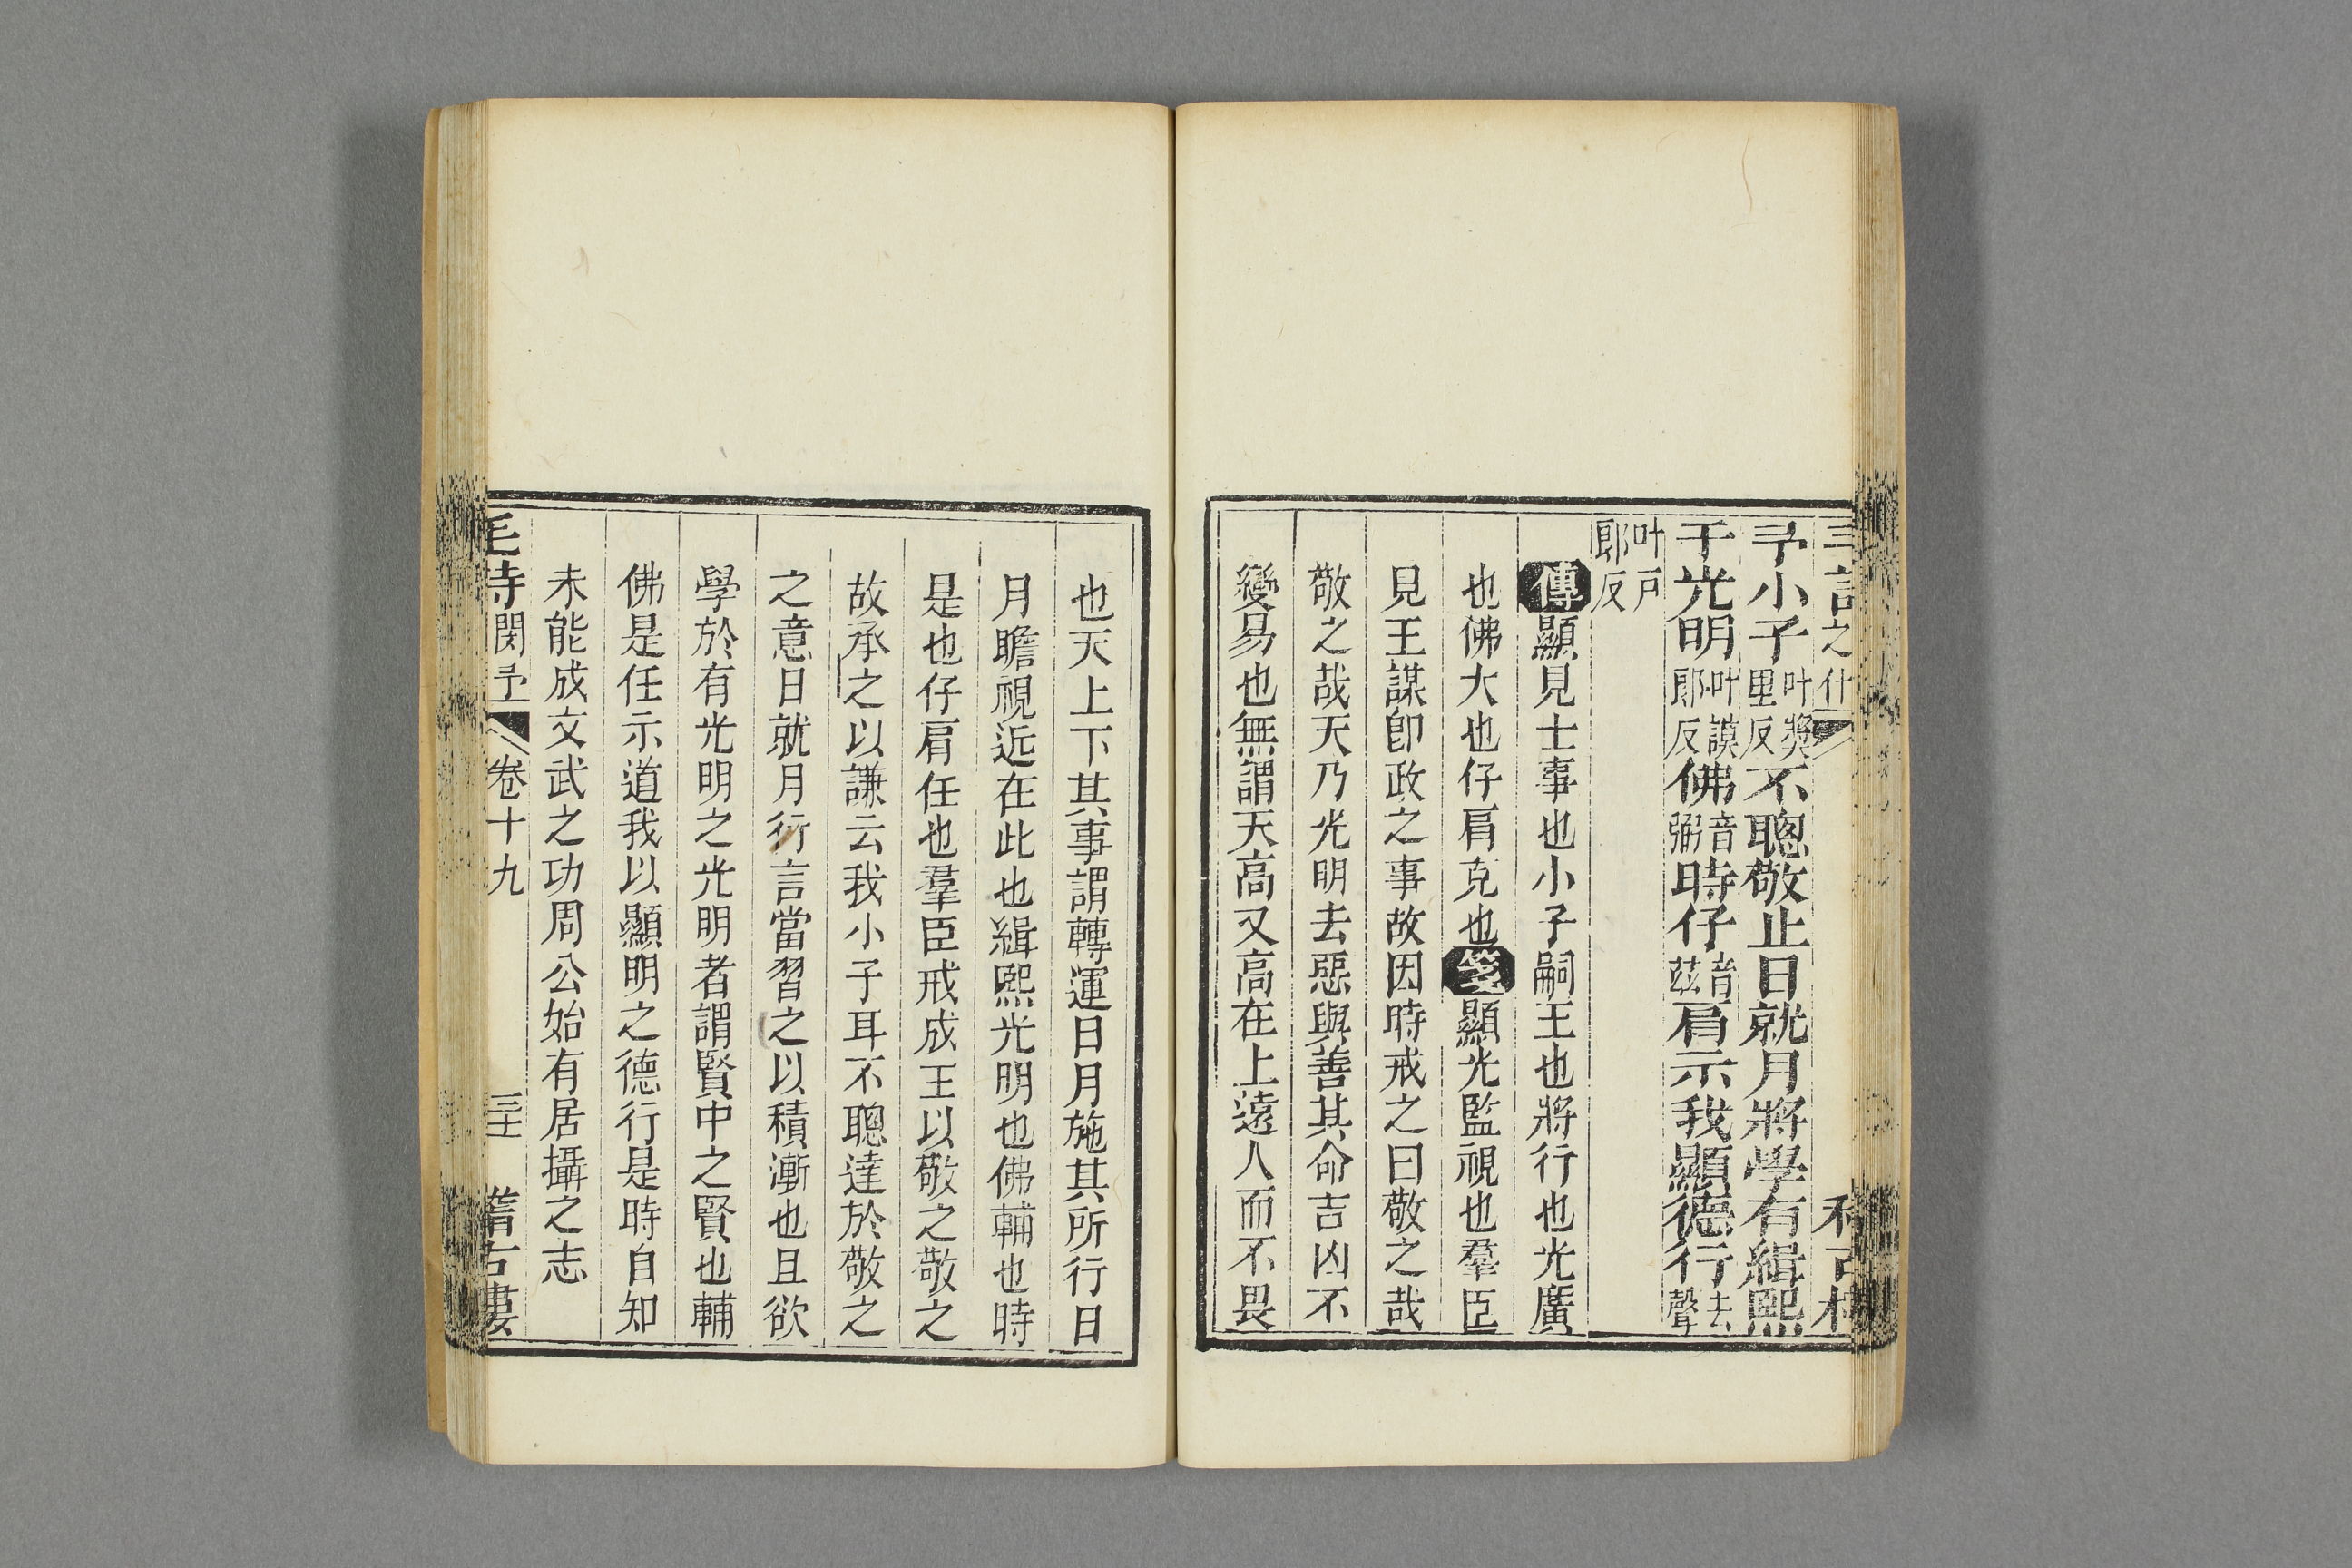 之什
予小子叶獎里反不聰敬止日就月將學有緝熙
于光明叶謨郎反佛音弼時仔音茲肩示我顯德行去聲
叶戸郎反
傳顯見士事也小子嗣王也將行也光廣
也佛大也仔肩克也箋顯光監視也羣臣
見王謀卽政之事故因時戒之曰敬之哉
敬之哉天乃光明去惡與善其命吉凶不
變易也無謂天高又高在上遠人而不畏
也天上下其事謂轉運日月施其所行日
月瞻視近在此也緝熙光明也佛輔也時
是也仔肩任也羣臣戒成王以敬之敬之
故承之以謙云我小子耳不聰達於敬之
之意日就月行言當習之以積漸也且欲
學於有光明之光明者謂賢中之賢也輔
佛是任示道我以顯明之德行是時自知
未能成文武之功周公始有居攝之志
毛詩閔予 卷十九 古樓